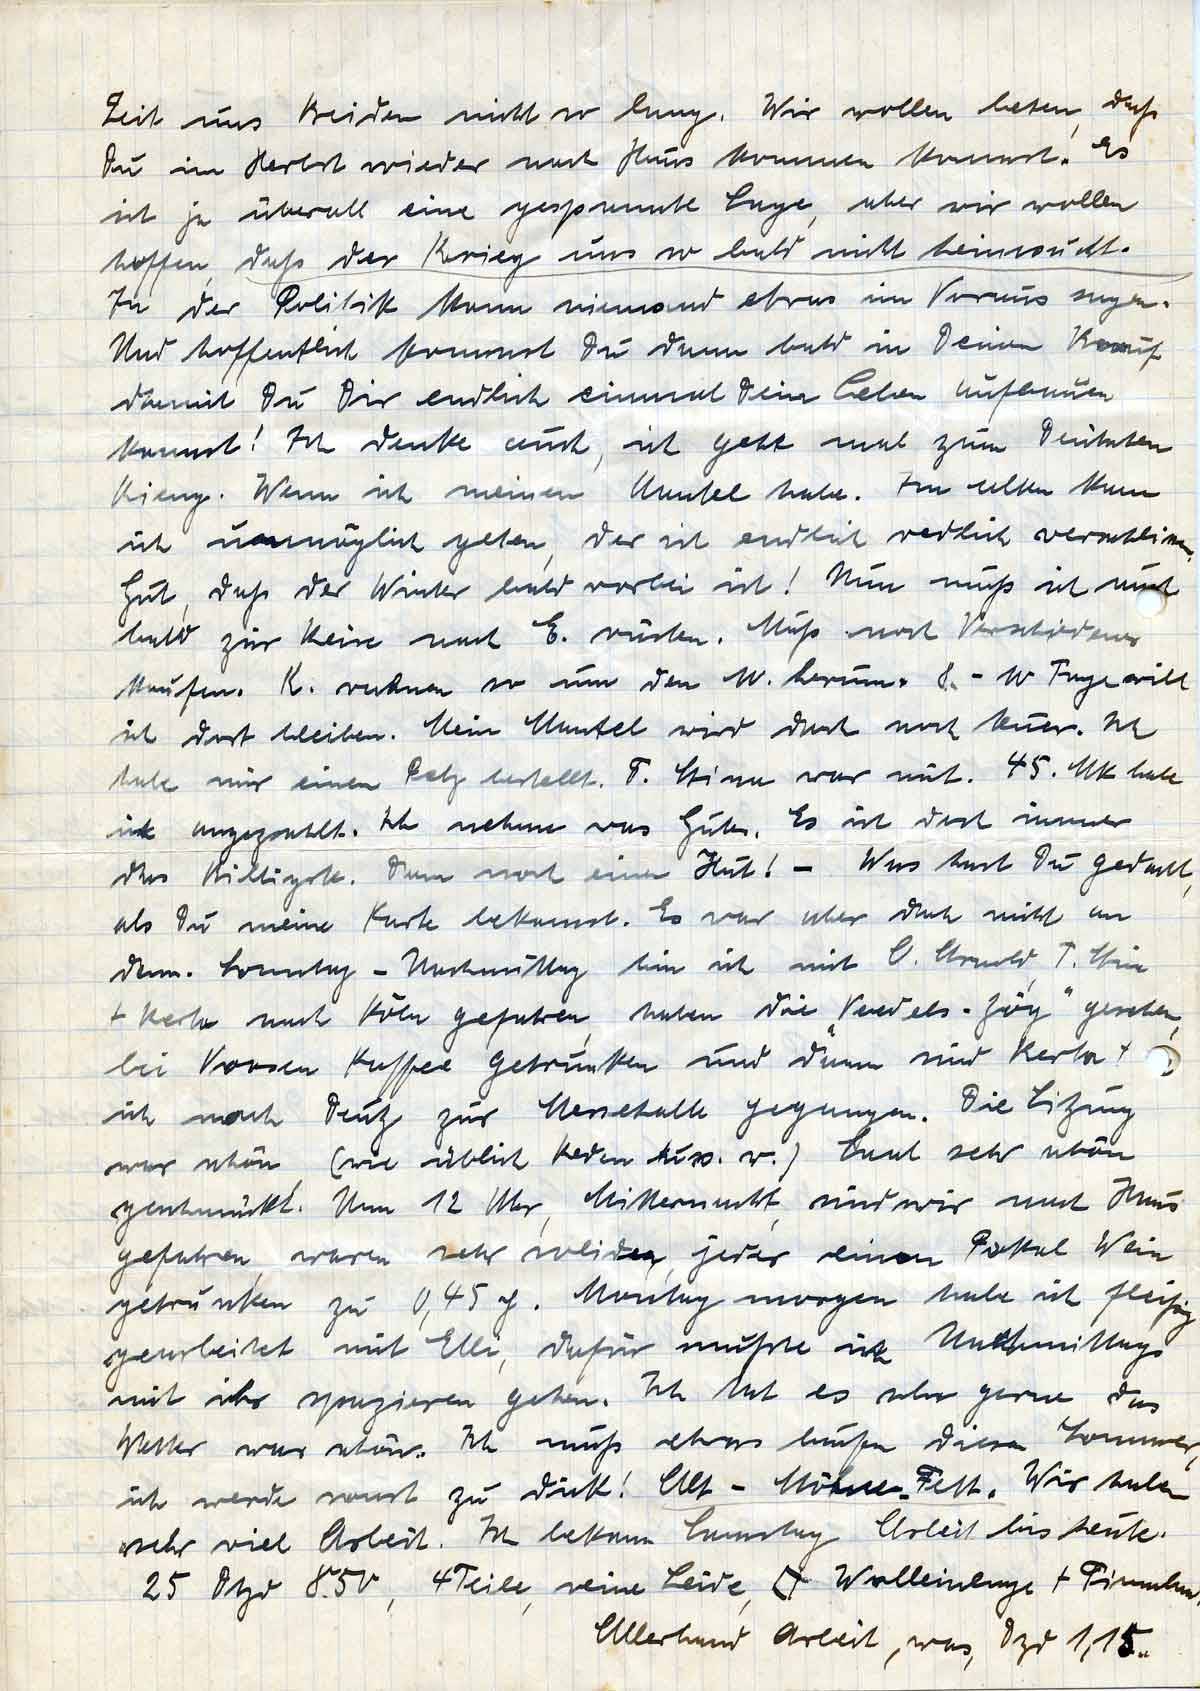 Zeit uns Beiden nicht so lang. Wir wollen beten, daß
Du im Herbst wieder nach Haus kommen kannst. Es
ist ja überall eine gespannte Lage, aber wir wollen
hoffen, daß der Krieg uns so bald nicht heimsucht.
In der Politik kann niemand etwas im Voraus sagen.
Und hoffentlich kommst Du dann bald in Deinen Beruf
damit Du Dir endlich einmal Dein Leben aufbauen
kannst! Ich denke auch, ich gehe mal zum
Wenn ich meinen Mantel habe. Im alten kann
ich unmöglich gehen, der ist endlich redlich verschlissen.
Gut, daß der Winter bald vorbei ist! Nun muß ich auch
bald zur Reise nach E. rüsten. Muß noch Verschiedenes
kaufen. K. rechnen so um den 10. herum. 8 - 10 Tage will
ich dort bleiben. Mein Mantel wird doch noch teuer. Ich
habe mir einen Pelz bestellt. T. Stina war mit. 45. Mk habe
ich angezahlt. Ich nehme was Gutes. Es ist doch immer
das Billigste. Dann noch einen Hut! – Was hast Du gedacht,
als Du meine Karte bekamst. Es war aber doch nicht an
dem. Sonntag - Nachmittag bin ich mit O. Arnold, T. Stina
+ Kerta nach Köln gefahren, haben die "Veedels-Zög" gesehen,
bei Voosen Kaffee getrunken und dann sind Kerta +
ich nach Deutz zur Messehalle gegangen. Die Sitzung
war schön (wie üblich Reden u.s.w.) Saal sehr schön
geschmückt. Um 12 Uhr, Mitternacht, sind wir nach Haus
gefahren, waren sehr solide, jeder einen Pokal Wein
getrunken zu 0,45 ₰. Montag morgen habe ich fleißig
gearbeitet mit Elli, dafür mußte ich Nachmittags
mit ihr spazieren gehen. Ich tat es sehr gerne das
Wetter war schön. Ich muß etwas laufen diesen Sommer,
ich werde sonst zu dick! Alt - Möhne-Fett. Wir haben
sehr viel Arbeit. Ich bekam Samstag Arbeit bis heute.
25 Dtzd 850, 4 Teile, reine Seide, Wolleinlage +
Allerhand Arbeit, was, Dzd 1,15.